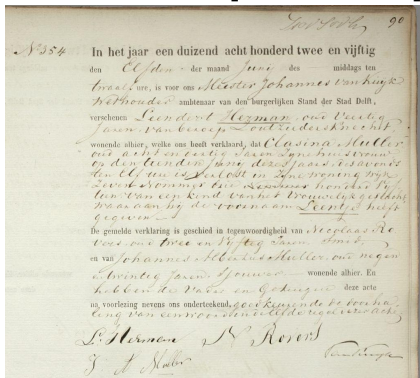 90
No 354 In het jaar een duizend acht honderd twee en vijftig
den Elfden der maand Junij des middags ten
twaalf ure, is voor ons Meester Johannes van Kuyk
Wethouder ambtenaar van den burgerlijken Stand der Stad Delft,
verschenen Leendert Herman, oud Veertig
Jaren, van beroep Zoutziedersknecht
wonende alhier, welke ons heeft verklaard, dat Clasina Muller
oud acht en dertig Jaren Zyne huisvrouw
op den tienden Junij dezes Jaars des avonds
ten Elf ure is verlost in Zyne woning Wyk
Zeven Nommer honderd Vyf
tien van een kind van het Vrouwelyk geslacht
waaraan hy de voornaam Leintje heeft
gegeven
De gemelde verklaring is geschied in tegenwoordigheid van Nicolaas Ro
vers oud twee en Vyftig Jaren Smid
en van Johannes Albertus Muller, oud negen
en twintig Jaren, Sjouwer wonende alhier. En
hebben de Vader en Getuigen deze acte
na voorlezing nevens ons onderteekend, goedkeurende de doorha
ling van een woord in den elfde regel dezer acte,
L. Herman N Rovers
J A Muller